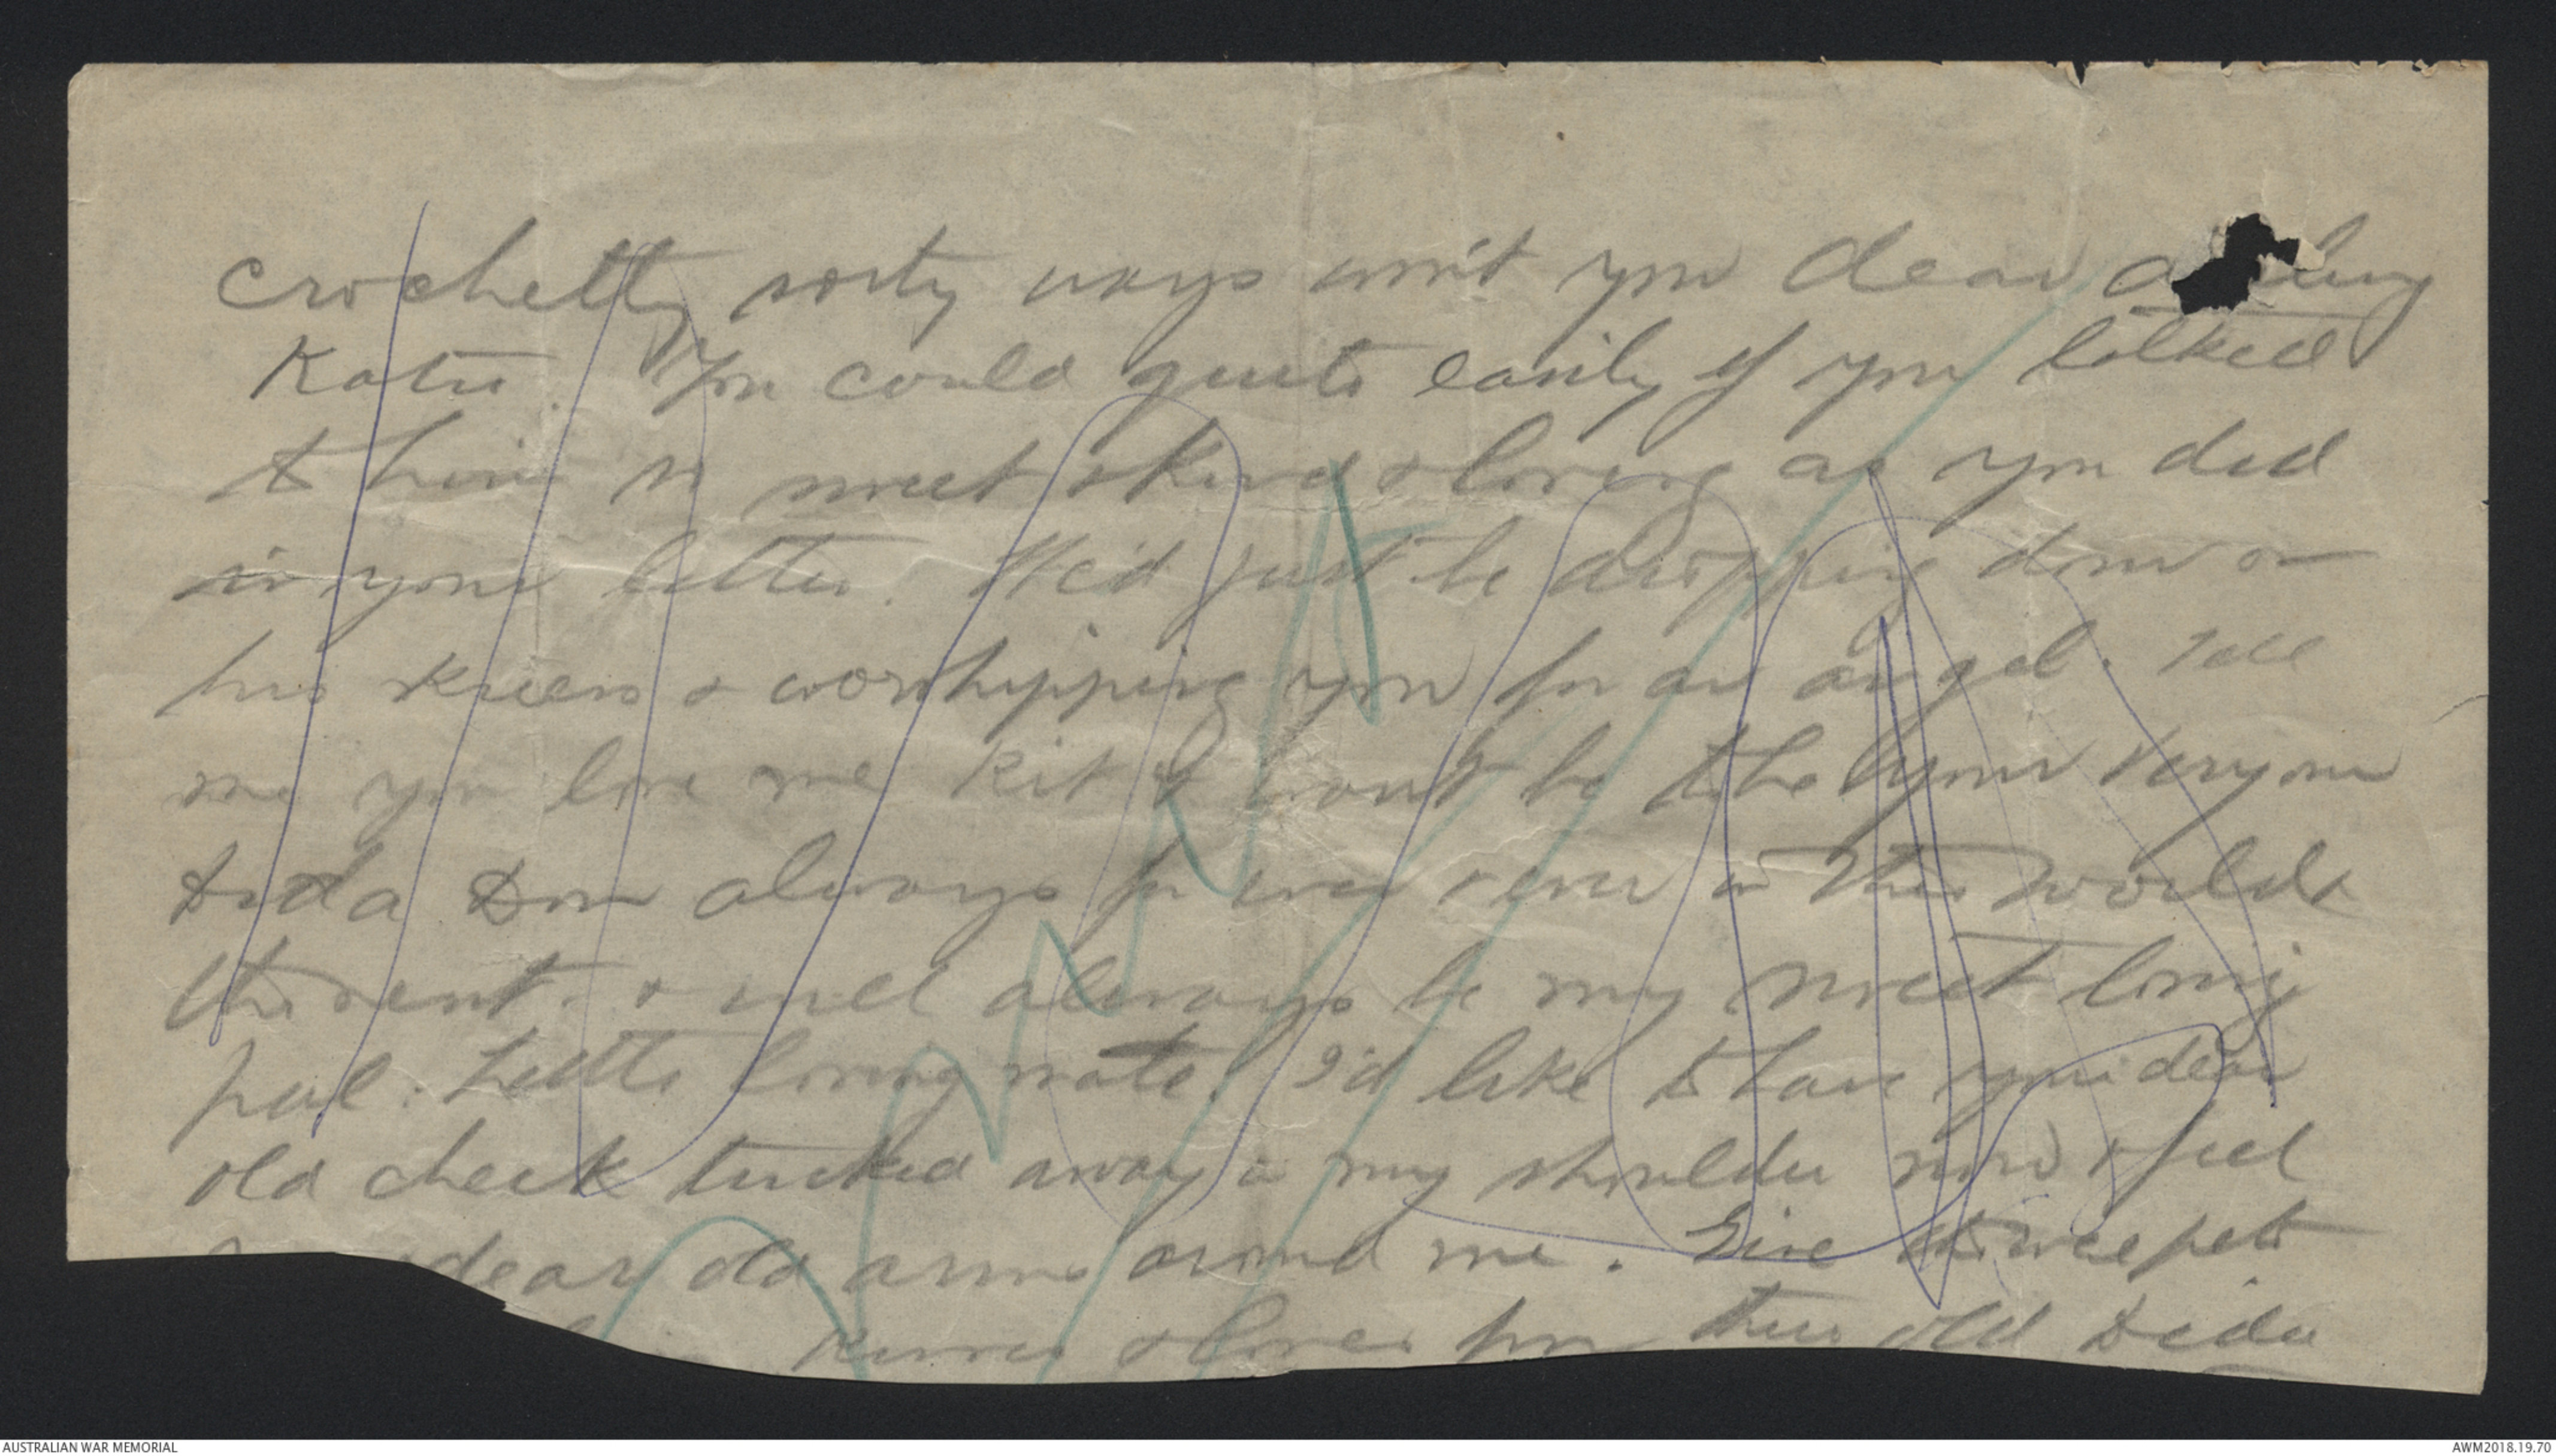 crochetty sorty ways won't you dear
Katie. You could quite easily if you talked
to him so sweet & kind & loving as you did
in your letter. He'd just be dropping down on
his knees & worshipping you for an angel. Tell
me you love me Kit & want to be your very own
Dida Dom always for ever & ever in this world &
the next. & will always be my sweet loving
pal. Little loving mate. I'd like to have your dear
old cheek tucked away in my shoulder now & feel
dear old arms around me. Give the wee pets
kisses & loves from their old Dida
AUSTRALIAN WAR MEMORIAL
AWM2018.19.70